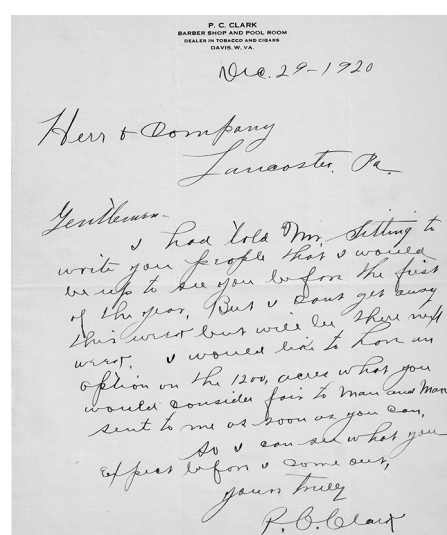 P. C. CLARK
BARBER SHOP AND POOL ROOM
DEALER IN TOBACCO AND CIGARS
DAVIS, W. VA.
Dec. 29-1920
Herr & Company
Lancaster, Pa.
Gentlemen-
I had told Mr. Sitting to
write you people that I would
be up to see you before the first
of the year, But I cant get away
this week but will be there next
week, I would like to have an
option on the 1200, acres what you
would consider fair to man and man
sent to me as soon as you can,
So I can see what you
expect before I come out,
yours truly
P. C. Clark